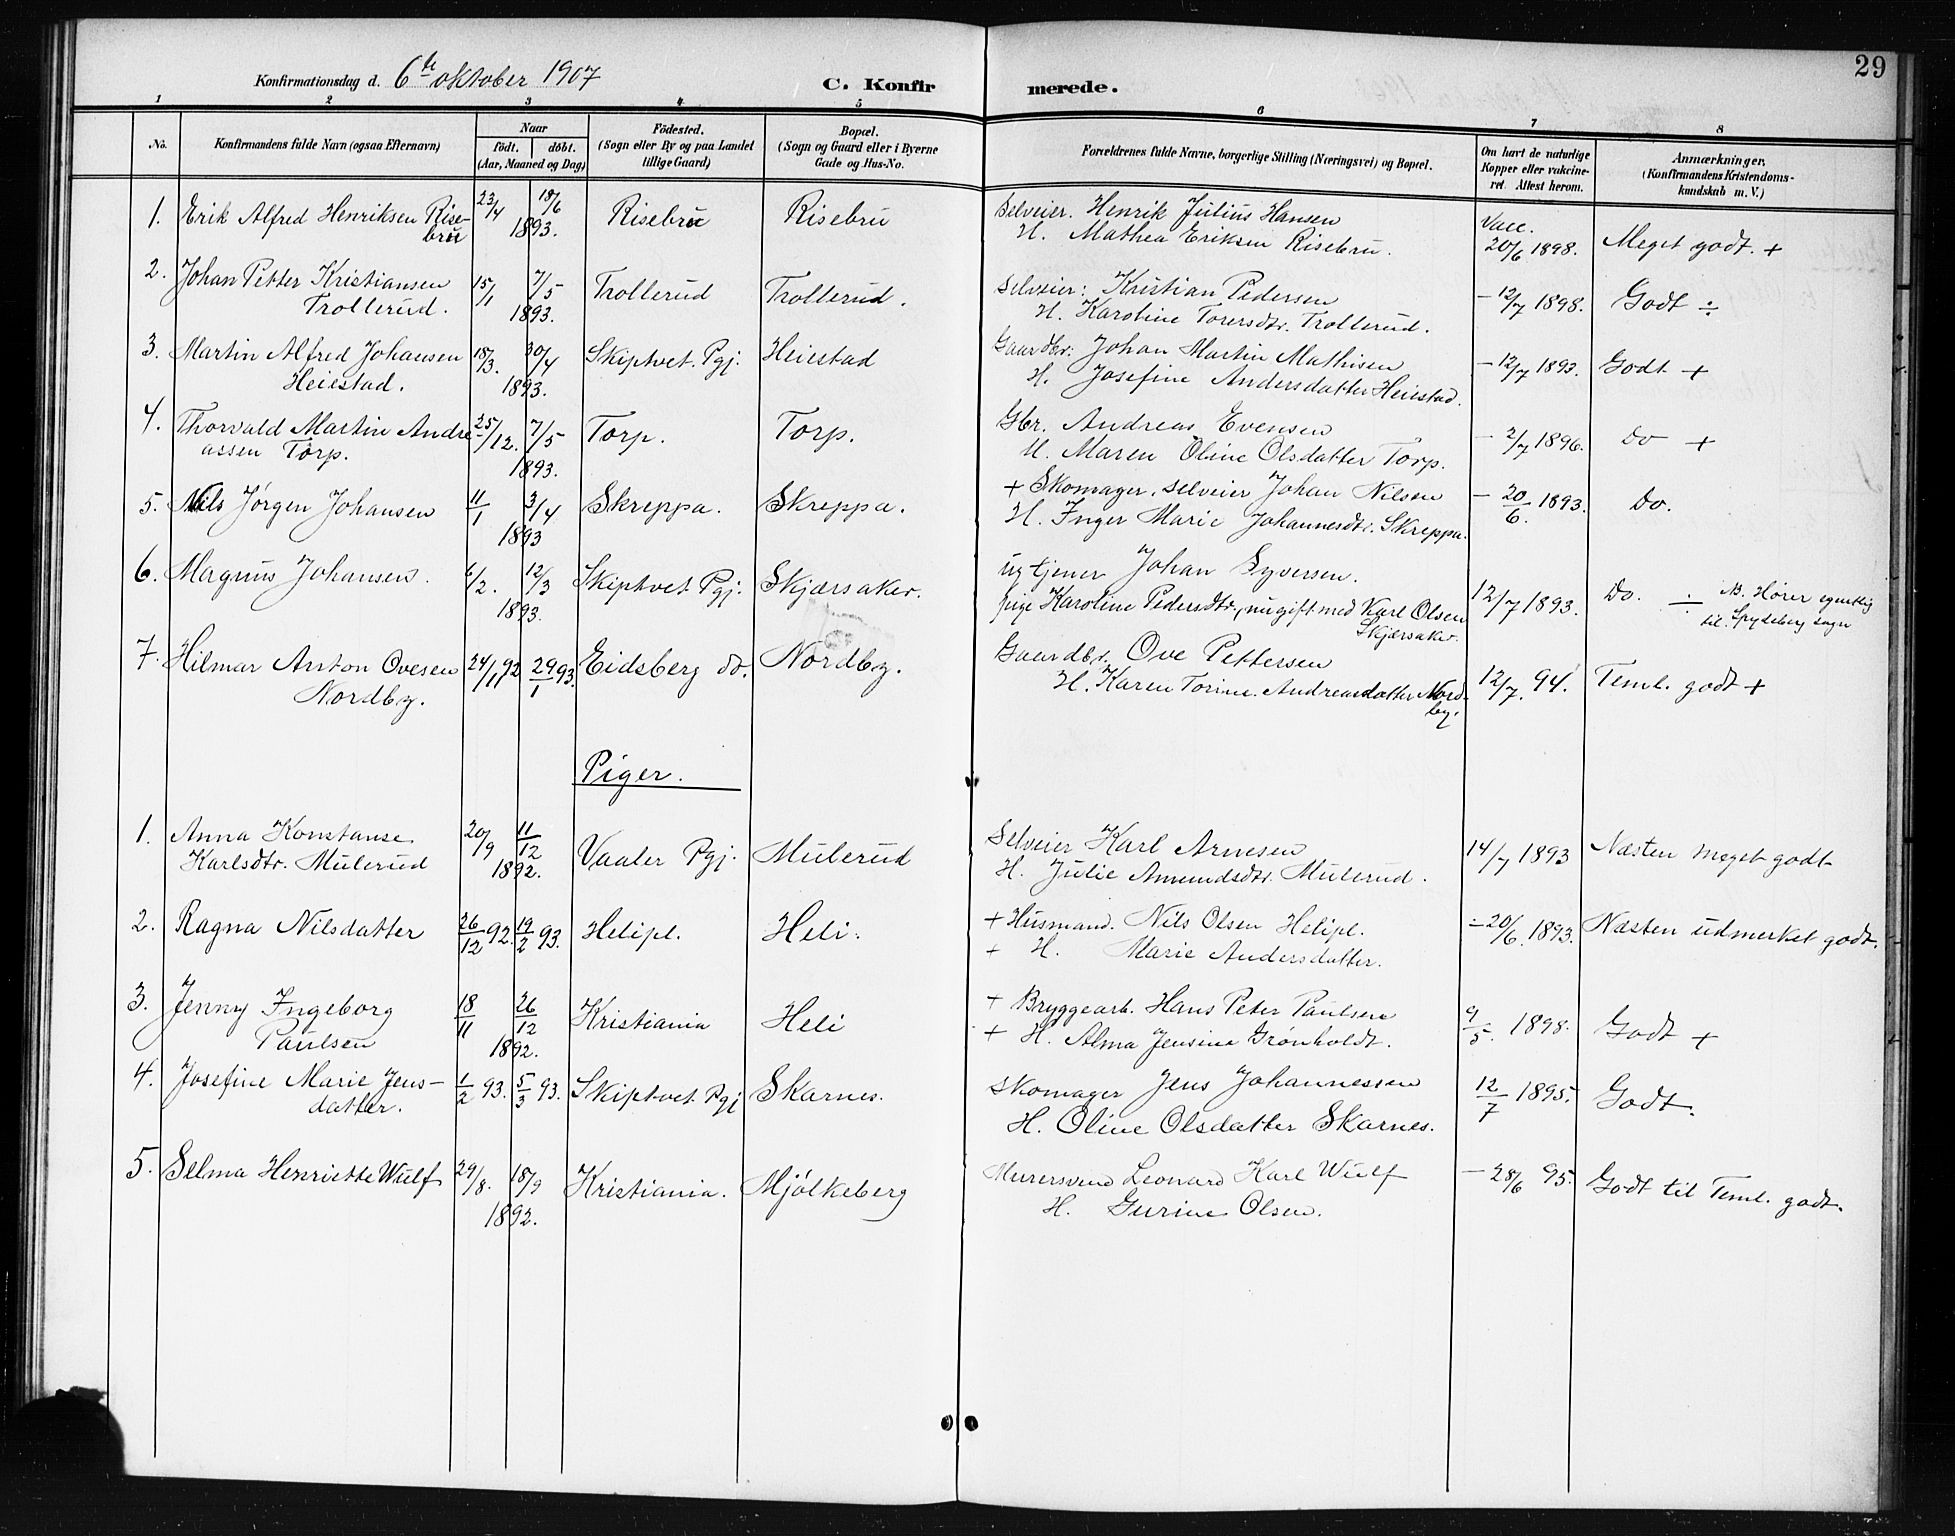 29
Konfirmationsdag d. 6te oktober 1907
C. Konfirmerede.
1 2 3 4 5 6 7 8
No.
Konfirmandens fulde Navn (ogsaa Efternavn)
Naar
födt. döbt.
(Aar, Maaned og Dag)
Födested.
(Sogn eller By og paa Landet
tillige Gaard)
Bopæl.
(Sogn og Gaard eller i Byerne
Gade og Hus-No.
Forældrenes fulde Navne, borgerlige Stilling (Næringsvei) og Bopæl.
Om havt de naturlige
Kopper eller vakcine-
ret. Attest herom.
Anmærkninger,
(Konfirmandens Kristendoms-
kundskab m. V.)
1. Erik Alfred Henriksen Rise- 23/4 18/6 Risebru Risebru Selveier. Henrik Julius Hansen Vacc.
bru 1893. H. Mathea Eriksen Risebru. 20/6 1898. Meget godt. +
2. Johan Petter Kristiansen 15/1 7/5 Trollerud Trollerud. Selveier: Kristian Pedersen — 12/7 1898. Godt ÷
Trollerud. 1893. H. Karoline Torersdtr. Trollerud.
3. Martin Alfred Johansen 18/3. 30/4 Skiptvet Pgj. Heiestad Gaardbr: Johan Martin Mathisen — 12/7 1893. Godt +
Heiestad. 1893. H. Josefine Andersdatter Heiestad.
4. Thorvald Martin Andre- 25/12. 7/5 Torp. Torp. Gbr. Andreas Evensen — 2/7 1896. Do +
assen Torp. 1893. H. Maren Oline Olsdatter Torp.
5. Nils Jørgen Johansen 11/1 3/4 Skreppa. Skreppa. + Skomager, selveier Johan Nilsen — 20/6. 1893. Do.
1893 H. Inger Marie Johannesdtr. Skreppa.
6. Magnus Johansen. 6/2. 12/3 Skiptvet Pgj. Skjærsaker. ug tjener Johan Syversen. 12/7 1893. Do. ÷ NB. Hører egentlig
1893. pige Karoline Pedersdtr., nu gift med Karl Olsen til Spydeberg sogn
Skjærsaker.
7. Hilmar Anton Ovesen 24/11 92 29/1 93. Eidsberg do. Nordby. Gaardbr. Ove Pettersen 12/7. 94. Teml. godt +
Nordby. H. Karen Torine Andreasdatter Nord-
by.
Piger.
1. Anna Konstanse 20/9 11/12 Vaaler Pgj. Mulerud Selveier Karl Arnesen 14/7 1893 Næsten meget godt
Karlsdtr. Mulerud 1892. H. Julie Amundsdtr. Mulerud.
2. Ragna Nilsdatter 26/12 92. 19/2 93. Helipl. Heli. + Husmand. Nils Olsen Helipl. — 20/6. 1893. Næsten udmerket godt.
+ H. Marie Andersdatter.
3. Jenny Ingeborg 18/11 26/12 Kristiania Heli + Bryggearb. Hans Peter Paulsen 9/5. 1898. Godt +
Paulsen 1892. + H. Alma Jensine Grønholdt.
4. Josefine Marie Jens- 1/2 93. 5/3 93. Skiptvet Pgj Skarnes. Skomager Jens Johannessen 12/7 1895. Godt.
datter. H. Oline Olsdatter Skarnes.
5. Selma Henriette Wulf 29/8. 18/9 Kristiania. Mjölkeberg Murersvend Leonard Karl Wulf — 28/6 95. Godt til Teml. godt.
1892. H. Gurine Olsen.